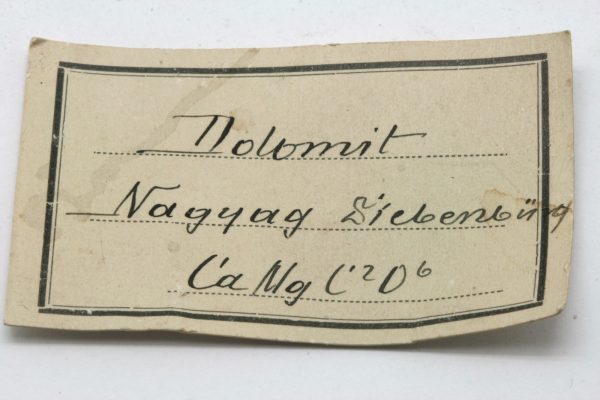 Dolomit
Nagyag Siebenbürg
Ca Mg C²O⁶